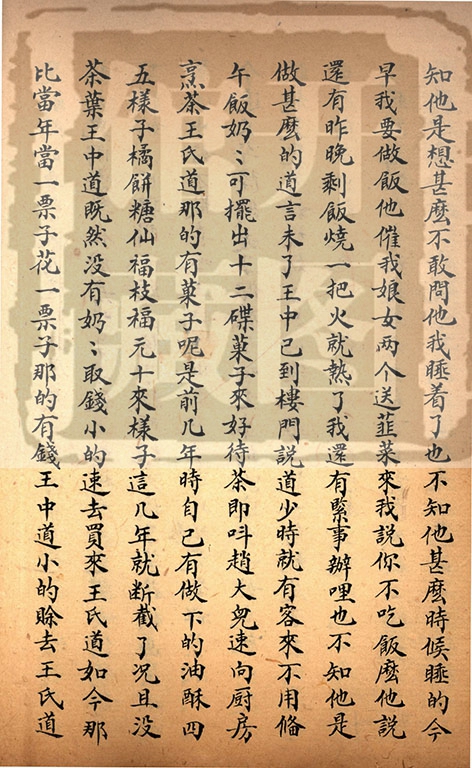 知他是想甚麽不敢問他我睡着了也不知他甚麽時候睡的今
早我要做飯他催我娘女两个送韮菜來我説你不吃飯麽他説
還有昨晚剩飯燒一把火就熱了我還有緊事辦哩也不知他是
做甚麽的道言未了王中已到樓門説道少時就有客來不用俻
午飯奶〻可擺出十二碟菓子來好待茶即呌趙大兒速向厨房
烹茶王氏道那的有菓子呢是前几年時自己有做下的油酥四
五樣子橘餅糖仙福枝福元十來樣子這几年就断截了况且没
茶葉王中道既然没有奶〻取錢小的速去買來王氏道如今那
比當年當一票子花一票子那的有錢王中道小的賒去王氏道